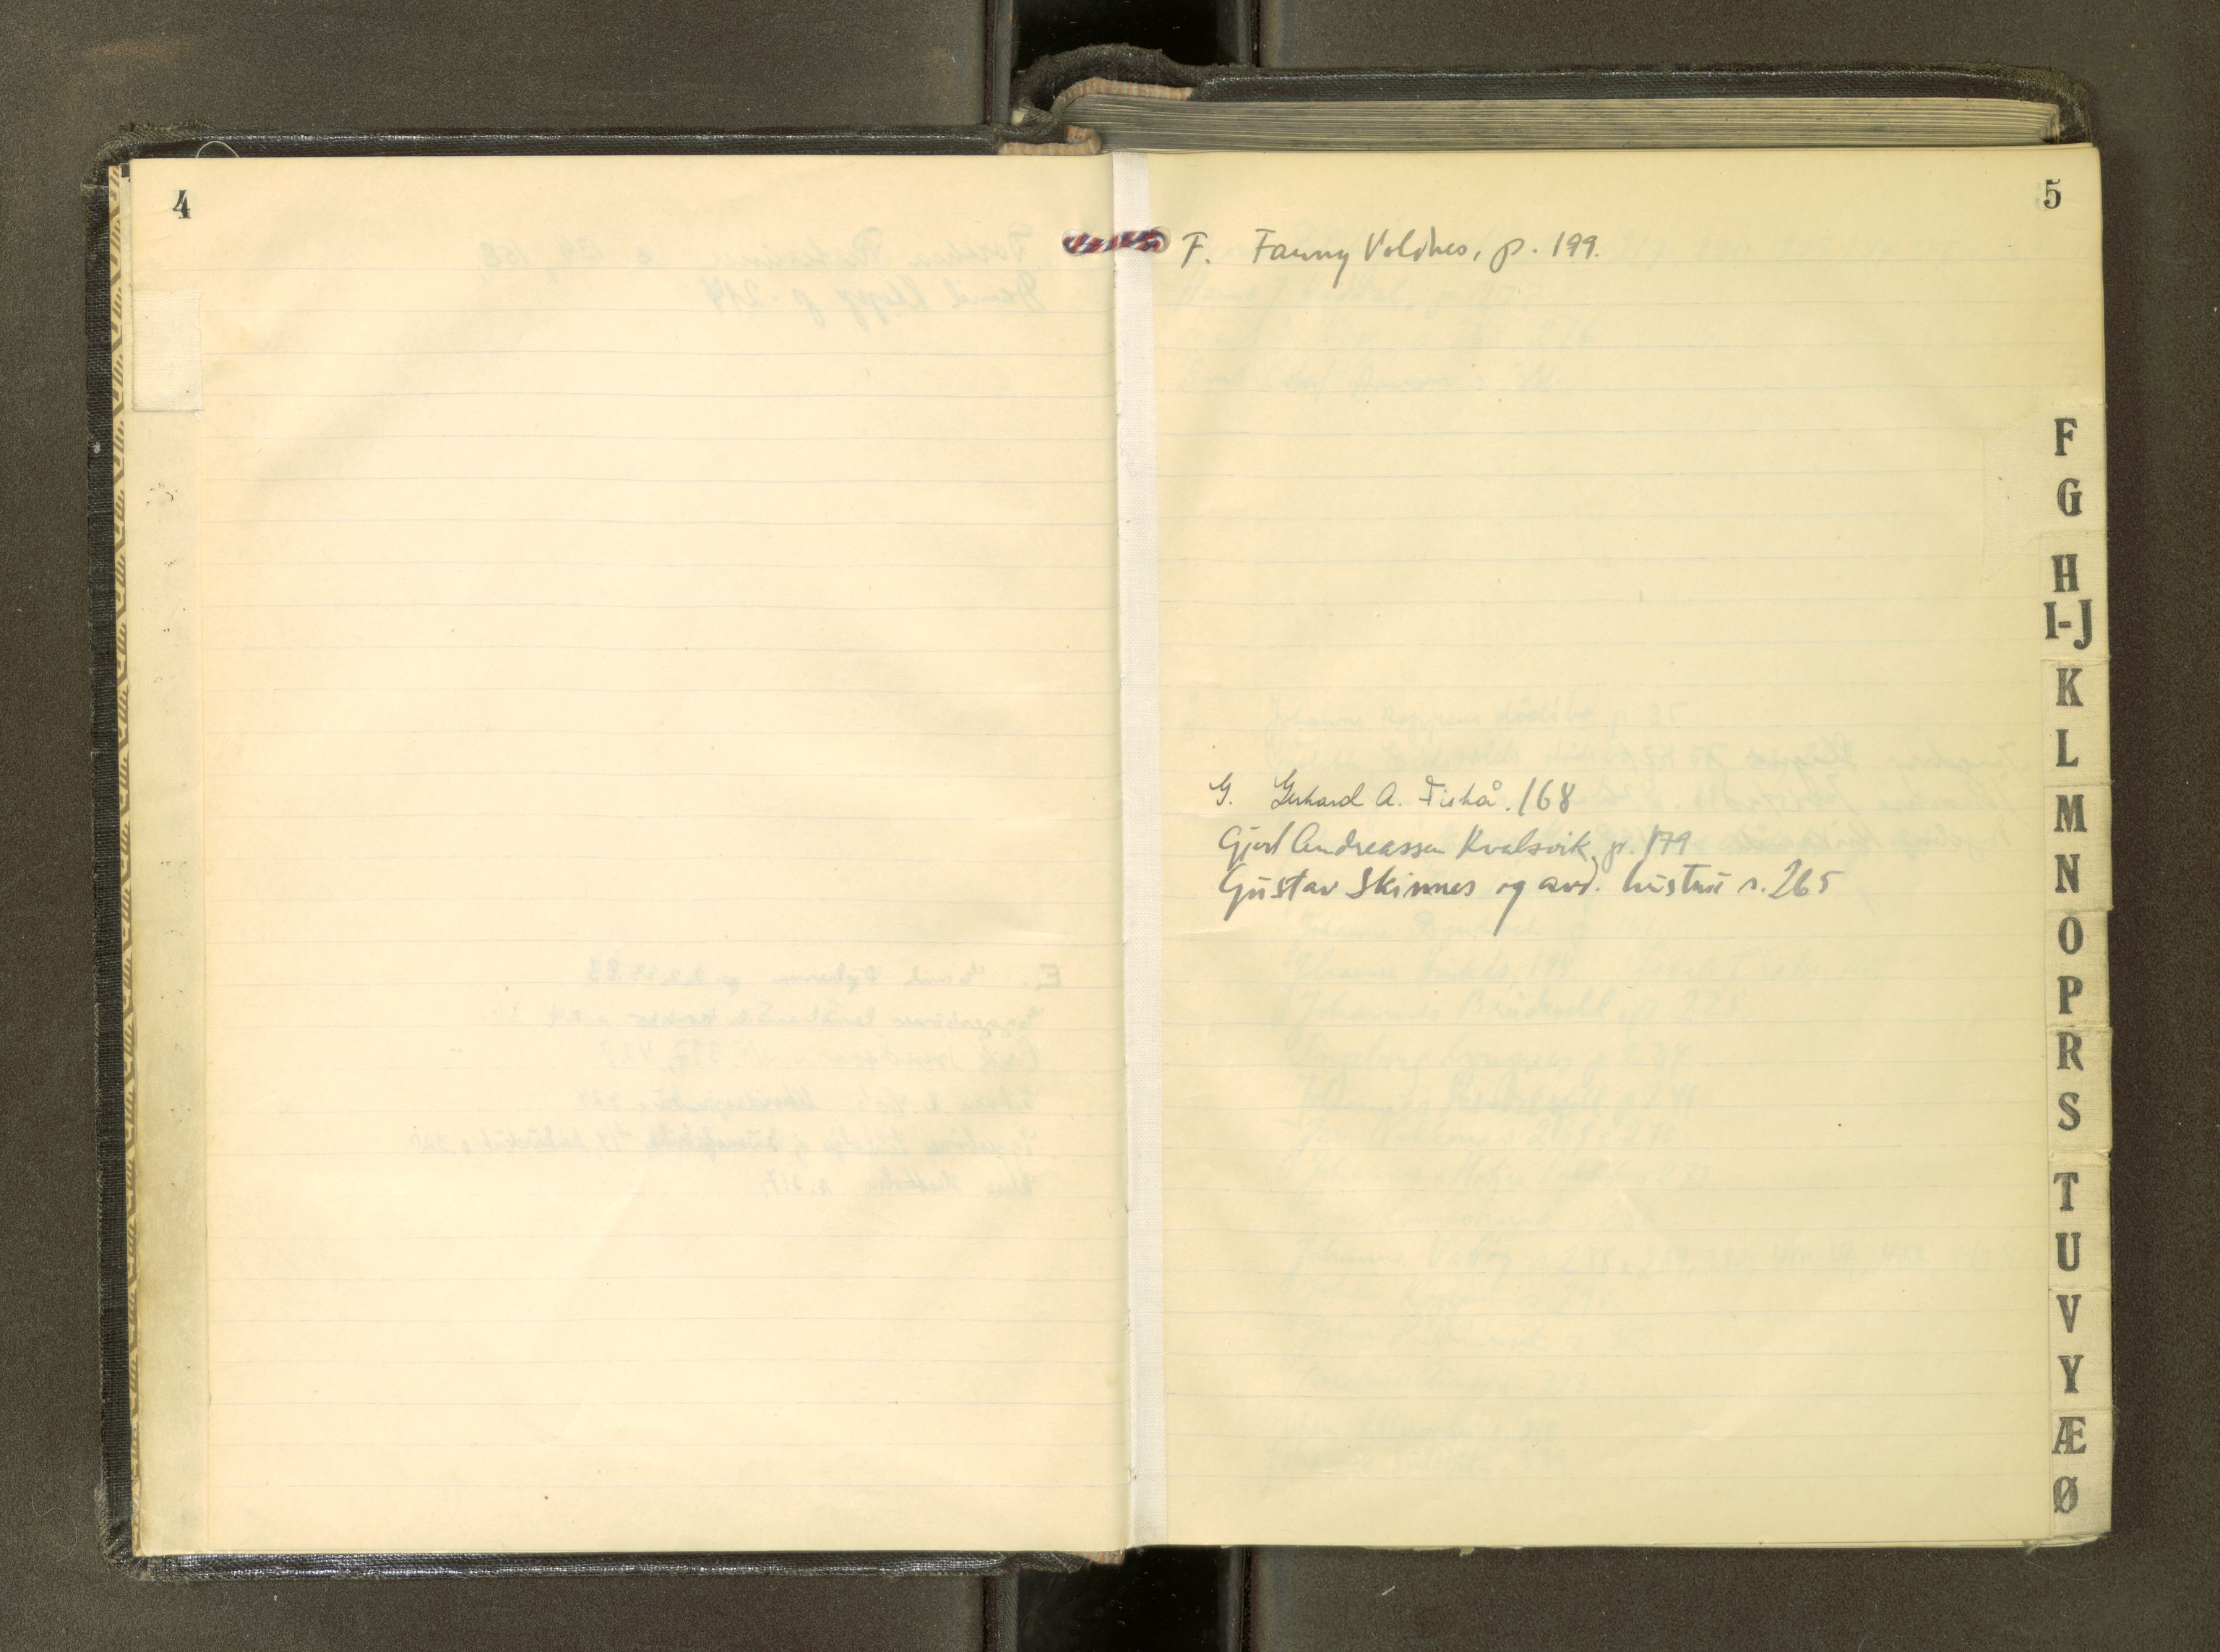 4
5
F. Fanny Voldnes, p. 199.
G. Gerhard A. Fiskå. 168
Gjert Andreassen Kvalsvik, p. 179
Gustav Skinnes og avd. hustru s. 265
F
G
H
I-J
K
L
M
N
O
P
R
S
T
U
V
Y
Æ
Ø